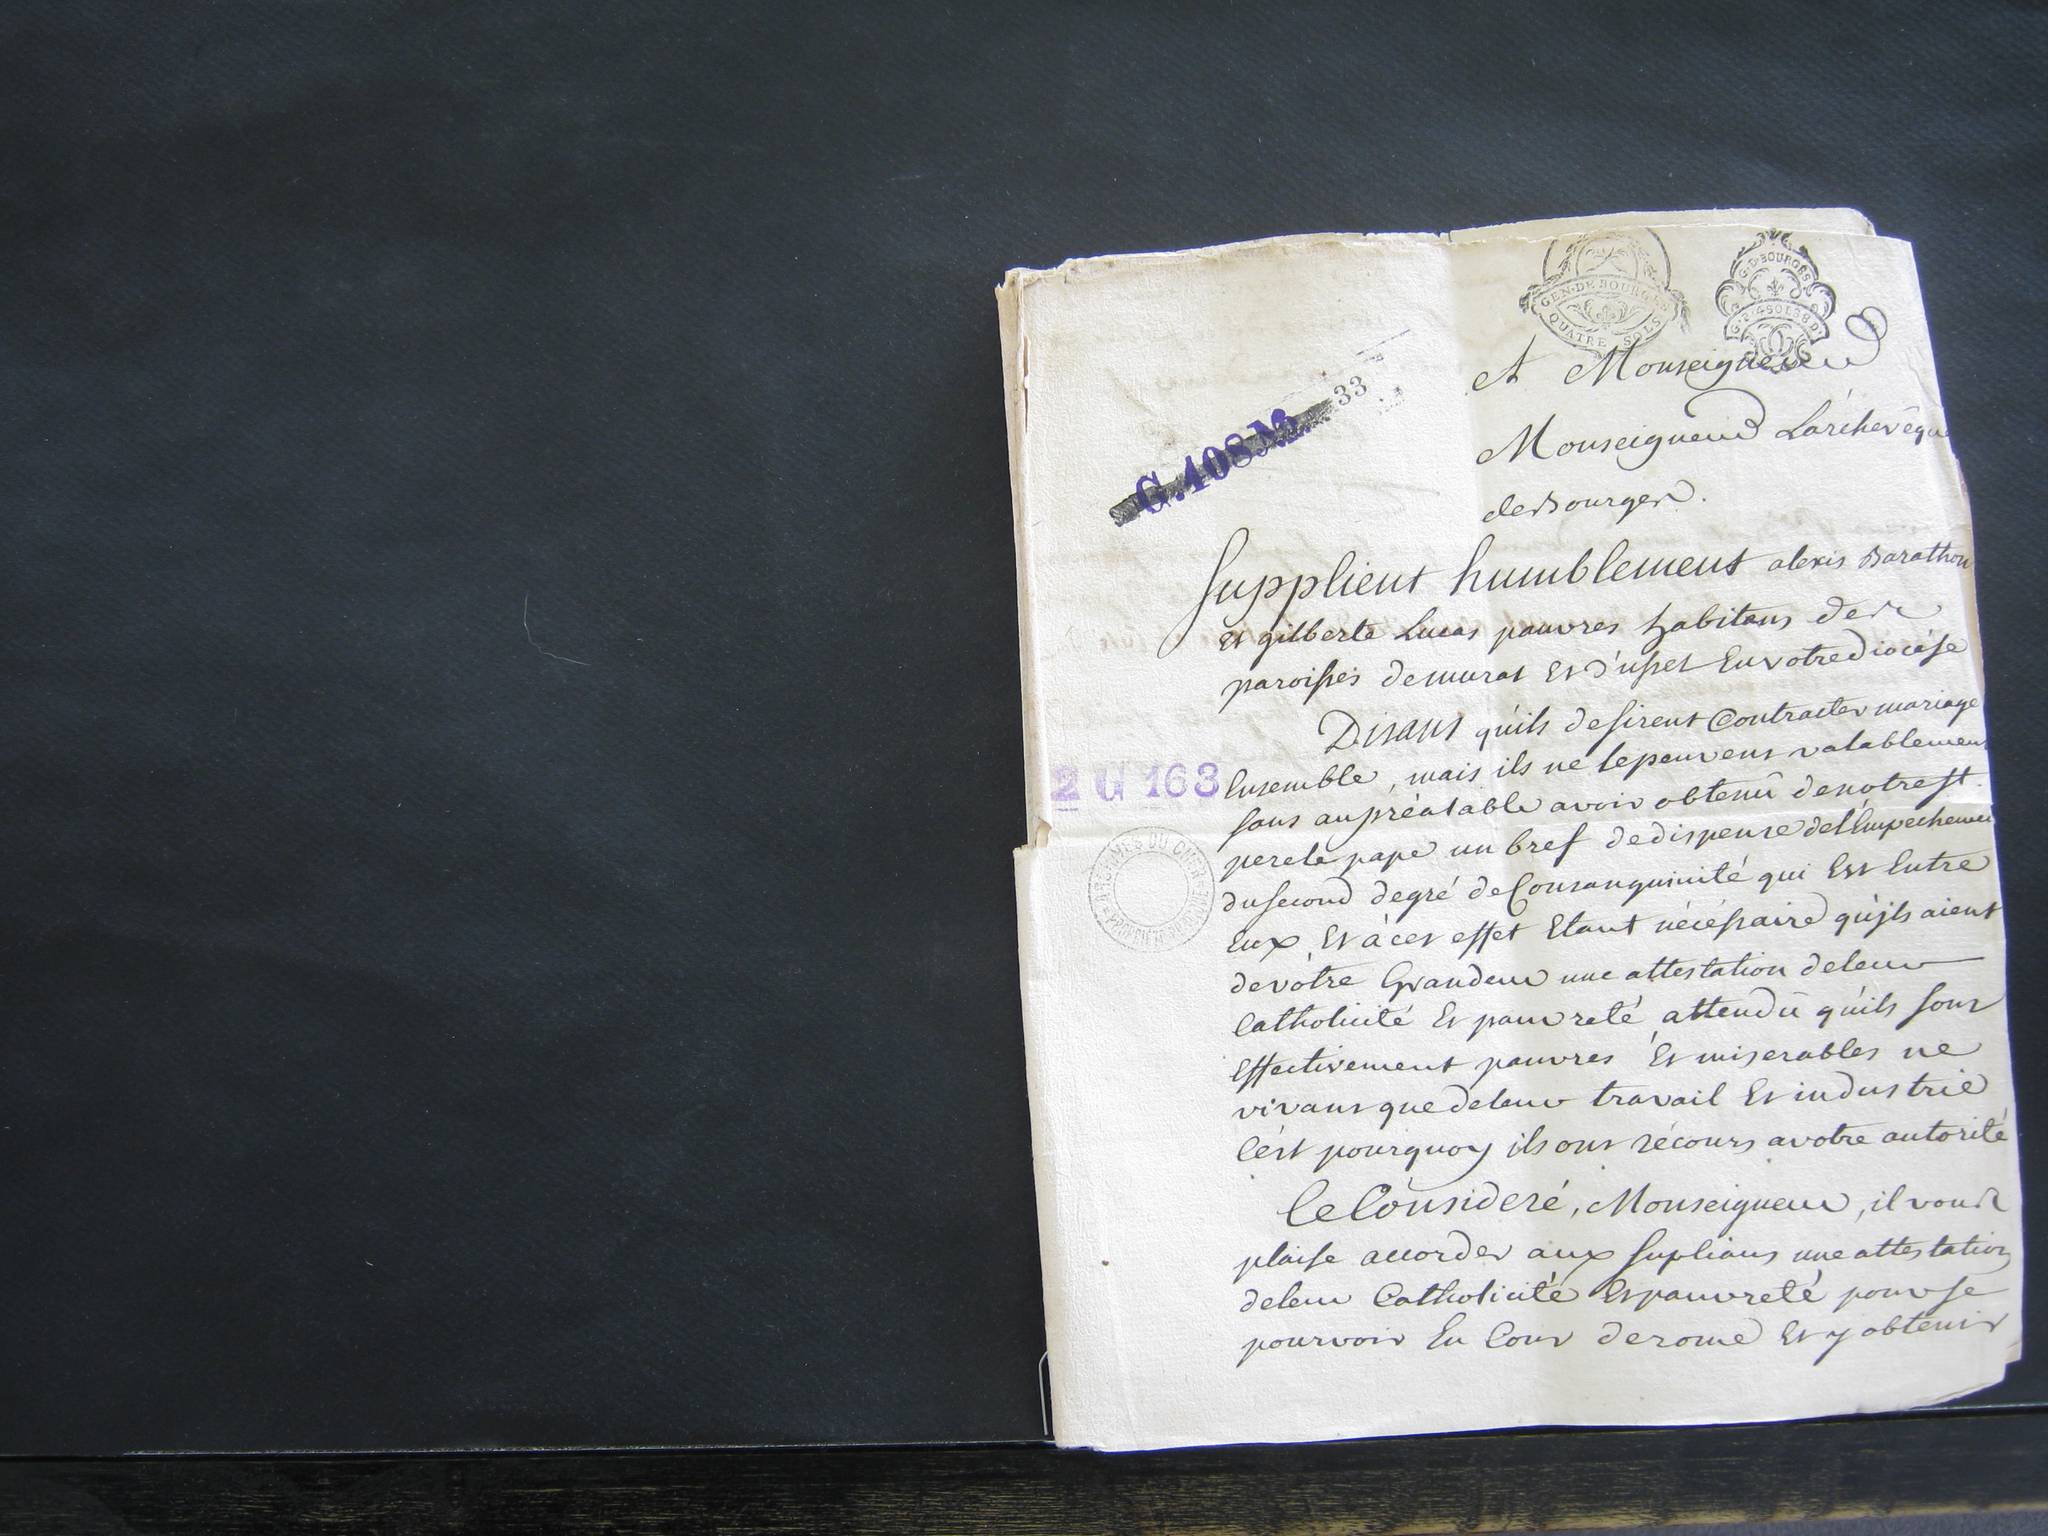 GEN. DE BOURGES
QUATRE SOLS
G. D. BOURGES
G. P. 4 SOLS 8 D.
33
G. 108 No
A Monseigneur
Monseigneur L'archevêque
de Bourges.
Supplient humblement alexis Barathon
et gilberte Lucas pauvres habitans des
paroisses de murat et d'usset En votre diocése
Disans qu'ils desirent Contracter mariage
Ensemble, mais ils ne le peuvent valablement
sans au préalable avoir obtenû de notre st.
pere le pape un bref de dispense de l'Empechement
du second degré de Consanguinité qui Est Entre
Eux, Et à cet effet Etant nécéssaire qu'ils aient
de vôtre Grandeur une attestation de leur
Catholicité Et pauvreté, attendû qu'ils sont
Effectivement pauvres Et miserables ne
vivans que de leur travail Et industrie
C'est pourquoy ils ont récours a votre autorité
Ce Considéré, Monseigneur, il vous
plaise accorder aux suplians une attestation
de leur Catholicité Et pauvreté pour se
pourvoir En Cour de rome Et y obtenir
2 G 163
ARCHIVES DU CHER